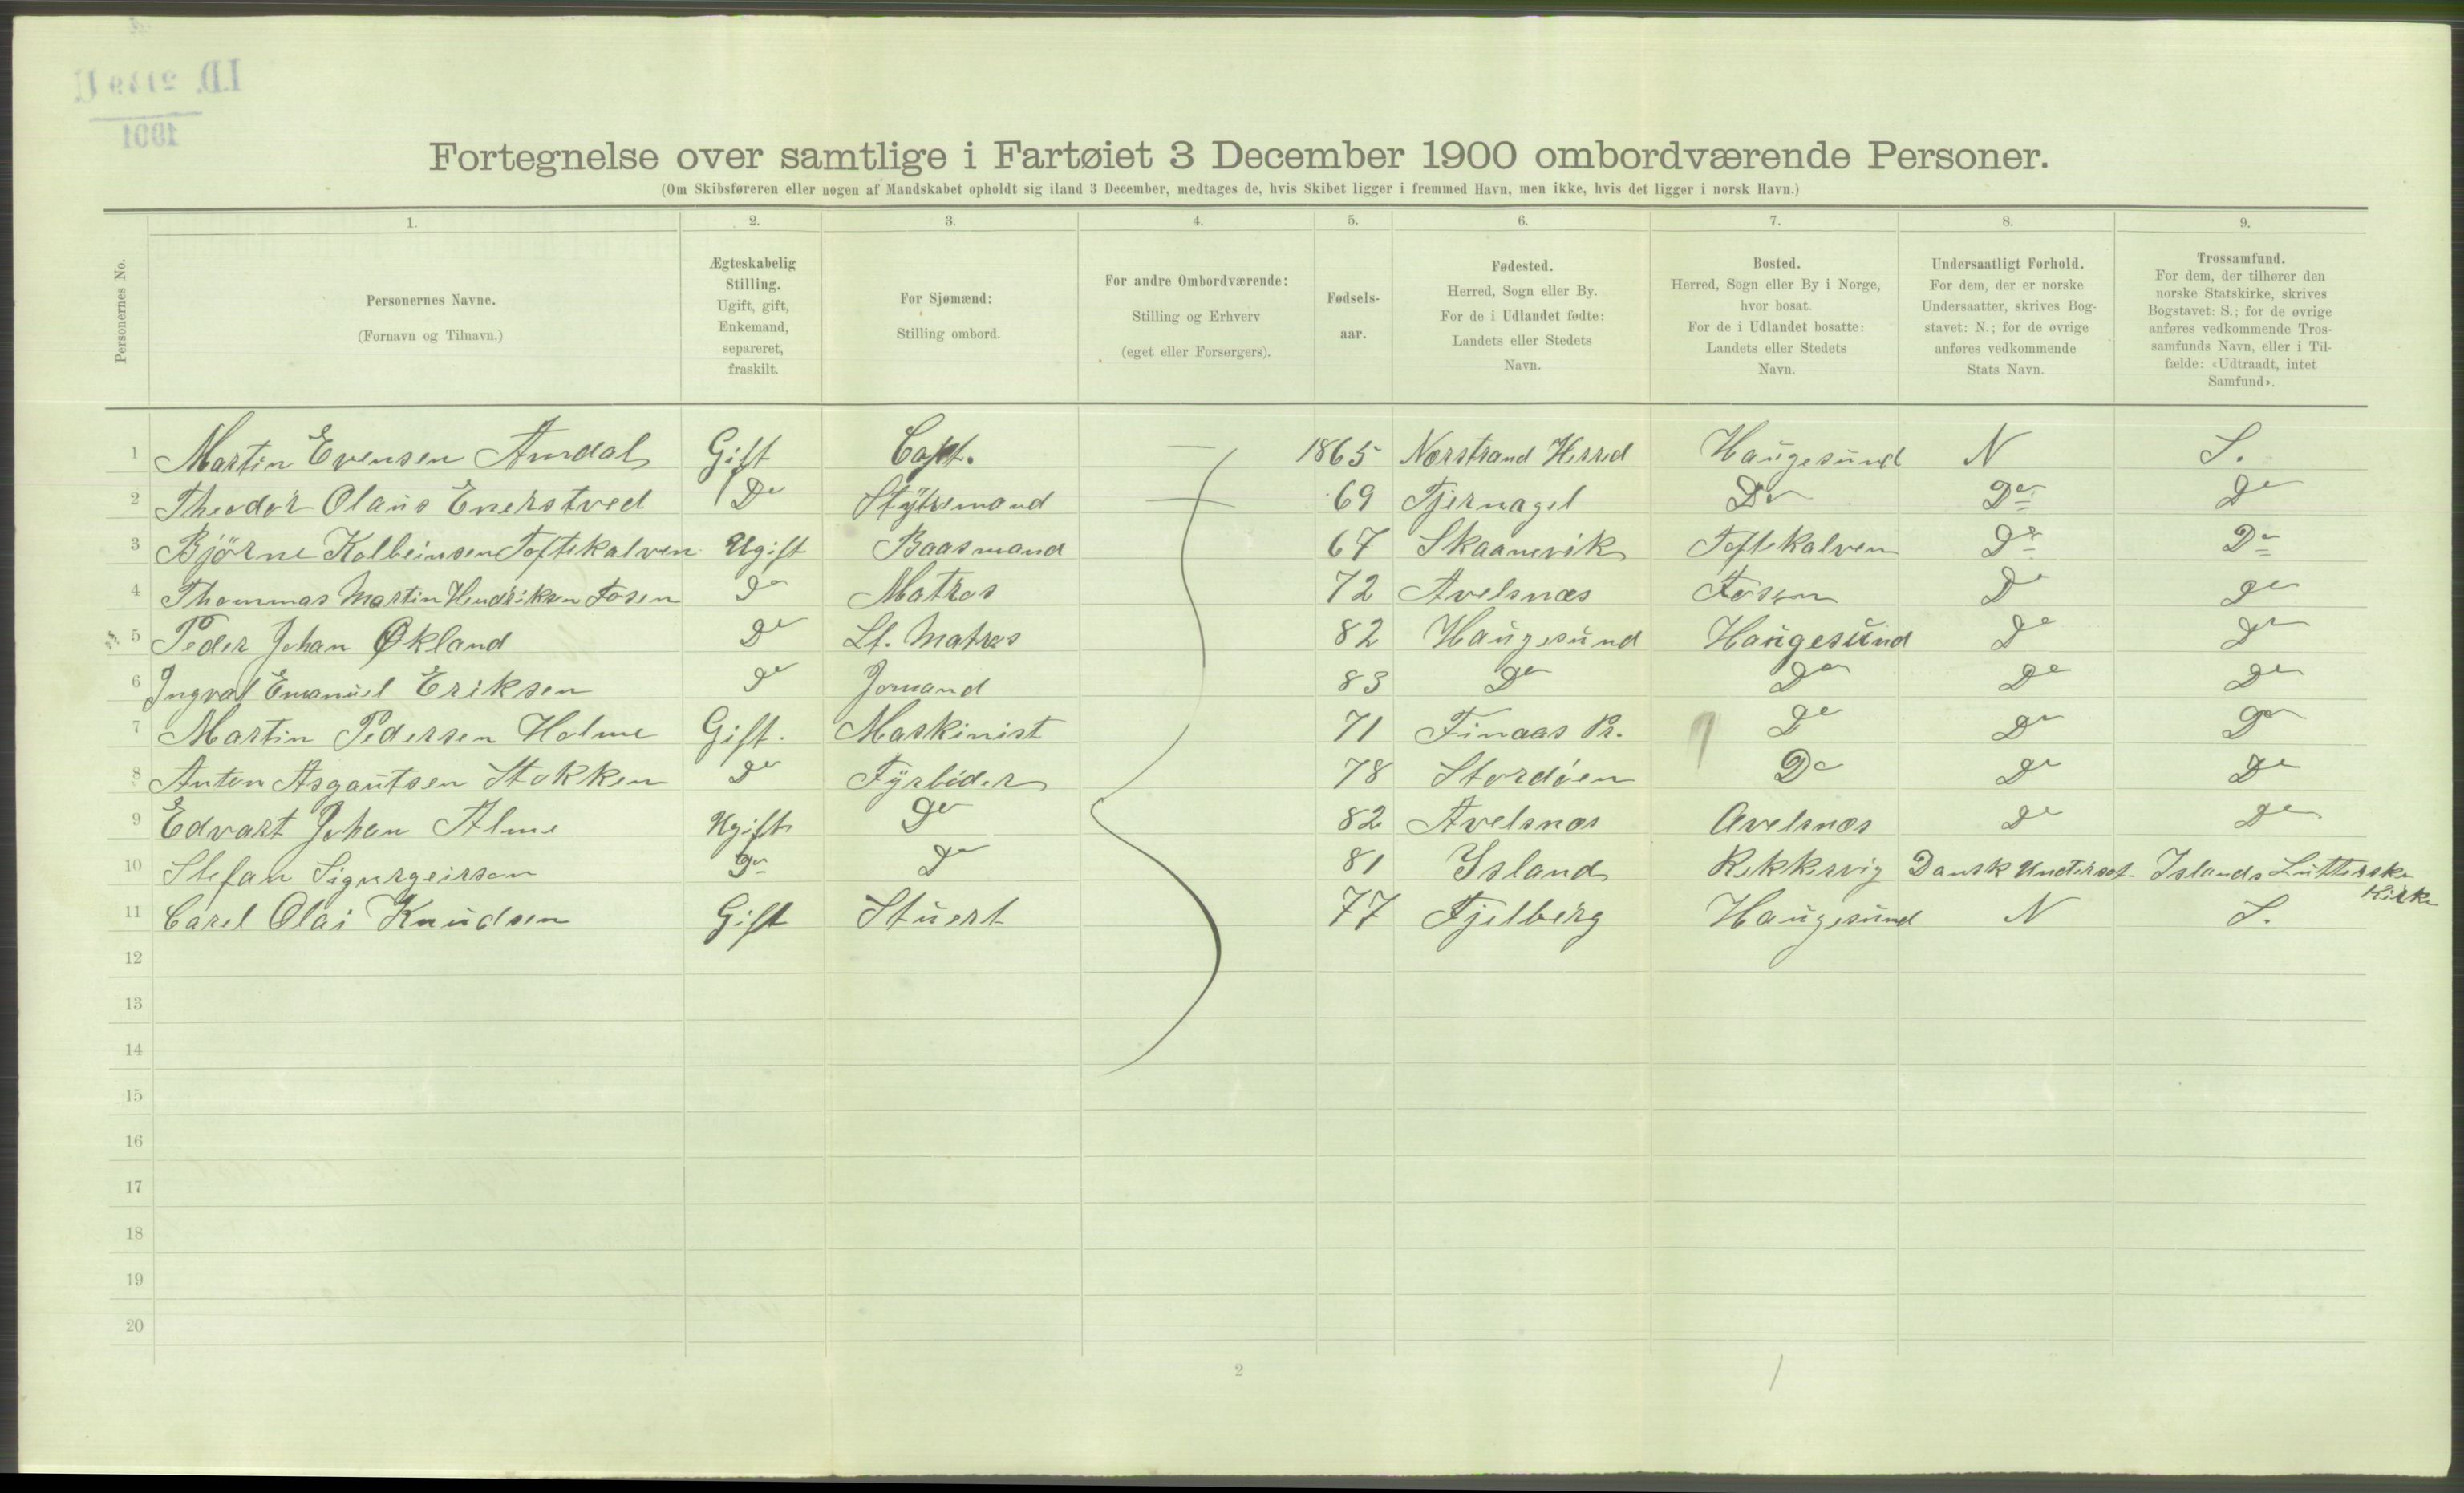 I.D. 2149 U
1901
Fortegnelse over samtlige i Fartøiet 3 December 1900 ombordværende Personer.
(Om Skibsføreren eller nogen af Mandskabet opholdt sig iland 3 December, medtages de, hvis Skibet ligger i fremmed Havn, men ikke, hvis det ligger i norsk Havn.)
Personernes No.
1. 2. 3. 4. 5. 6. 7. 8. 9.
Personernes Navne.
(Fornavn og Tilnavn.)
Ægteskabelig
Stilling.
Ugift, gift,
Enkemand,
separeret,
fraskilt.
For Sjømænd:
Stilling ombord.
For andre Ombordværende:
Stilling og Erhverv
(eget eller Forsørgers).
Fødsels-
aar.
Fødested.
Herred, Sogn eller By.
For de i Udlandet fødte:
Landets eller Stedets
Navn.
Bosted.
Herred, Sogn eller By i Norge,
hvor bosat.
For de i Udlandet bosatte:
Landets eller Stedets
Navn.
Undersaatligt Forhold.
For dem, der er norske
Undersaatter, skrives Bog-
stavet: N.; for de øvrige
anføres vedkommende
Stats Navn.
Trossamfund.
For dem, der tilhører den
norske Statskirke, skrives
Bogstavet: S.; for de øvrige
anføres vedkommende Tros-
samfunds Navn, eller i Til-
fælde: «Udtraadt, intet
Samfund».
1 Martin Evensen Amdal Gift Capt. — 1865 Nørstrand Herred Haugesund N S.
2 Theodor Olaus Enerstved Do Stÿremand — 69 Tjernagel Do Do Do
3 Björne Kolbeinsen Toftekalven Ugift Baasmand 67 Skaanevik Toftekalven Do Do
4 Thommas Martin Hendriksen Fosen Do Matros 72 Avelsnæs Fosen Do Do
5 Peder Johan Økland Do Lt. Matros 82 Haugesund Haugesund Do Do
6 Ingval Emanuel Eriksen Do Jomand 83 Do Do Do Do
7 Martin Pedersen Holme Gift. Maskinist 71 Finaas Pr. Do Do Do
8 Anton Asgautsen Stokken Do Fÿrböder 78 Stordöen Do Do Do
9 Edvart Johan Alme Ugift Do 82 Avelsnæs Avelsnæs Do Do
10 Stefan Sigurgeirson Do Do 81 Ysland Rekkervig Dansk Undersot. Islands Lutterske
Kirke
11 Carel Olai Knudsen Gift Stuert 77 Fjelberg Haugesund N S.
12
13
14
15
16
17
18
19
20
2